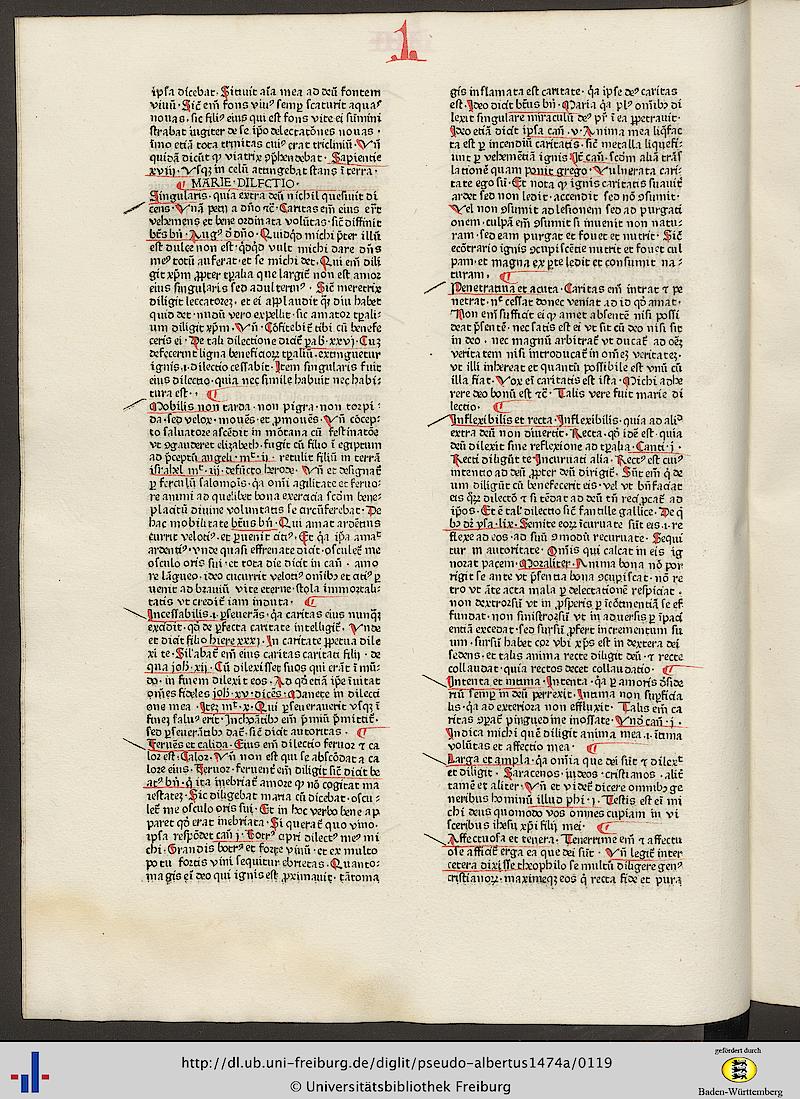 1
ipsa dicebat. Sitiuit aīa mea ad deū fontem
viuū. Sic̄ em̄ fons viu⁹ semꝑ scaturit aquas
nouas. sic fili⁹ eius qui est fons vite ei sūmini
strabat iugiter de se ip̄o delectatōnes nouas.
īmo etiā tota trinitas cui⁹ erat tricliniū. Vñ
quidā dicūt ꝙ viatrix ꝯphendebat. Sapientie
xviij. Vsq̄ in celū attingebat stans ī terra.
MARIE DILECTIO.
Singularis. quia extra deū nichil quesiuit di
cens. Vnā petij a dño ⁊c̄. Caritas em̄ eius est
vehemens et bene ordinata volūtas. sic̄ diffinit
bt̄us bñ. Aug⁹ ō dño. Quidꝙ michi p̄ter illū
est dulce non est. ꝙdꝙ vult michi dare dñs
me⁹ totū auferat. et se michi det. Qui em̄ dili
git xp̄m ꝓpter tꝑalia que largit̄ non est amor
eius singularis sed adulterin⁹. Sic̄ meretrix
diligit leccatorez. et ei applaudit ꝙ̄ diu habet
quid det. nudū vero expellit. sic amator tꝑali-
um diligit xp̄m. Vñ. Cōfitebit̄ tibi cū benefe
ceris ei. De tali dilectione dicit̄ ꝓab. xxvj. Cuz
defecerint ligna beneficioꝝ tꝑaliū. extinguetur
ignis .i. dilectio cessabit. Item singularis fuit
eius dilectio. quia nec simile habuit nec habi-
tura est.
Mobilis non tarda. non pigra. non torpi
da. sed velox. mouēs. et ꝓmouēs. Vñ cōcep-
to saluatore ascēdit in mōtana cū festinatōe
vt ꝯgauderet elizabeth. fugit cū filio ī egiptum
ad p̄ceptū angeli. mt̄. ij. retulit filiū in terrā
israhel mt̄. iij. defūcto herode. Vñ et designat̄
ꝑ ferculū salomōis. ꝗa om̄i agilitate et feruo-
re animi ad quelibet bona exercicia scd̄m bene-
placitū diuine voluntatis se circūferebat. De
hac mobilitate bt̄us bñ. Qui amat ardēcius
currit veloci⁹. et ꝑuenit citi⁹. Et ꝗa ip̄a amat
ardenti⁹. vnde quasi effrenate dicit. osculet̄ me
osculo oris sui. et tota die dicit in can̄. amo
re lāgueo. ideo cucurrit veloci⁹ om̄ibo et citi⁹ ꝑ
uenit ad brauiū vite eterne. stola immortali-
tatis vt credit̄ iam induta.
Incessabilis .i. ꝑseuerās. ꝗa caritas eius nunꝗ̄
excidit. qd̄ de ꝑfecta caritate intelligit̄. Vnde
et dicit filio hiere xxxj. In caritate ꝑpetua dile
xi te. Silabat̄ em̄ eius caritas caritati filij. de
qua joh̄. xij. Cū dilexisset suos qui erāt ī mū-
do. in finem dilexit eos. Ad qd̄ etiā ip̄e īuitat
om̄es fideles joh̄. xv. dicēs. Manete in dilecti
one mea. Itez mt̄. x. Qui ꝑseuerauerit vsqz ī
finez salu⁹ erit. Inchoātib̄ em̄ p̄miū ꝓmittit̄.
sed ꝑseuerātib̄ dat̄. sic̄ dicit autoritas.
Feruēs et calida. Eius em̄ dilectio feruor ⁊ ca
lor est. Calor. Vñ non est qui se abscōdat a ca
lore eius. Feruor. feruent̄ em̄ diligit sic̄ dicit be
at⁹ bñ. ꝙ ita inebriat̄ amore ꝙ nō cogitat ma
iestatez. Sic diligebat maria cū dicebat. oscu-
let̄ me osculo oris sui. Et in hoc verbo bene ap
paret qd̄ erat inebriata. Si querat̄ quo vino.
ipsa respōdet can̄ j. Botr⁹ cipri dilect⁹ me⁹ mi
chi. Grandis botr⁹ et forte vinū. et ex multo
potu fortis vini sequitur ebrietas. Quanto-
magis ei deo qui ignis est ꝓximauit. tātoma
gis inflamata est caritate. ꝗa ipse de⁹ caritas
est. Ideo dicit bt̄us bñ. Maria ꝗa pl⁹ om̄ibo di
lexit singulare miraculū de⁹ pr̄ ī ea ꝑpetrauit.
Ideo etiā dicit ipsa can̄. v. Anima mea liqfac
ta est ꝑ incendiū caritatis. sic̄ metalla liquefi-
unt ꝑ vehemētiā ignis. It̄ can̄. scd̄m aliā trās
lationē quam ponit grego. Vulnerata cari-
tate ego sū. Et nota ꝙ ignis caritatis suauit̄
ardet sed non ledit. accendit sed nō ꝯsumit.
Vel non ꝯsumit ad lesionem sed ad purgati
onem. culpā em̄ ꝯsumit si inuenit non natu-
ram. sed eam purgat et fouet et nutrit. Sic̄
ecōtrario ignis ꝯcupiscētie nutrit et fouet cul
pam. et magna ex ꝑte ledit et consumit na-
turam.
Penetratiua et acuta. Caritas em̄ intrat ⁊ pe
netrat. n̄ cessat donec veniat ad id qd̄ amat.
Non em̄ sufficit ei ꝙ amet absentē nisi possi
deat p̄sentē. nec satis est ei vt sit cū deo nisi sit
in deo. nec magnū arbitrat̄ vt ducat̄ ad oēz
veritatem nisi introducat̄ in om̄ez veritatez.
vt illi inhereat et quantū possibile est vnū cū
illa fiat. Vox ei⁹ caritatis est ista. Michi adhe
rere deo bonū est ⁊c̄. Talis vere fuit marie di
lectio.
Inflexibilis et recta. Inflexibilis. quia ad aliꝺ
extra deū non diuertit. Recta. qd̄ idē est. quia
deū dilexit sine reflexione ad tꝑalia. Canti .j.
Recti diligūt te. Incuruati alia. Rect⁹ est cui⁹
intentio ad deū ꝓpter deū dirigit̄. Sūt em̄ ꝙ de
um diligūt cū benefecerit eis. vel vt bn̄faciat
eis qz dilectō ⁊ si tēdat ad deū tn̄ reciꝓcat̄ ad
ip̄os. Et ē tal̄ dilectio sic̄ fantille gallice. De ꝙ
bo dr̄ ysa. lix. Semite eoꝝ īcuruate sūt eis .i. re
flexe ad eos. ad suū ꝯmodū recuruate. Sequi
tur in autoritate. Om̄is qui calcat in eis ig
norat pacem. Moraliter. Anima bona nō por
rigit se ante vt p̄sentia bona ꝯcupiscat. nō re
tro vt āte acta mala ꝑ delectationē respiciat.
non dextrorsū vt in ꝓsperis ꝑ icōtinentiā se ef
fundat. non sinistrorsū vt in aduersis ꝑ īpaci
entiā excedat. sed sursū ꝓfert incrementum su
um. sursū habet cor vbi xp̄s est in dextera dei
sedens. et talis anima recte diligit deū. ⁊ recte
collaudat. quia rectos decet collaudatio.
Intenta et intima. Intenta. ꝗa ꝑ amoris ꝯside
riū semꝑ in deū perrexit. Intima non suꝑficia
lis. ꝗa ad exteriora non effluxit. Talis em̄ ca
ritas ꝯꝑat̄ pinguedine inossate. Vnō can̄. j.
Indica michi quē diligit anima mea .i. ītima
volūtas et affectio mea.
Larga et ampla. ꝗa om̄ia que dei sūt ⁊ dilexit
et diligit. Saracenos. iudeos. cristianos. alit̄
tamē et aliter. Vñ et videt̄ dicere omnibo ge
neribus hominū illud phi .j. Testis est ei mi
chi deus quomodo vos omnes cupiam in vi
sceribus ihesu xp̄i filij mei.
Affectuosa et tenera. Tenerrime em̄ ⁊ affectu
ose afficit̄ erga ea que dei sūt. Vñ legit̄ inter
cetera dixisse theophilo se multū diligere gen⁹
cristianoꝝ. maximeqz eos ꝗ recta fide et pura
http://dl.ub.uni-freiburg.de/diglit/pseudo-albertus1474a/0119
© Universitätsbibliothek Freiburg
gefördert durch
Baden-Württemberg